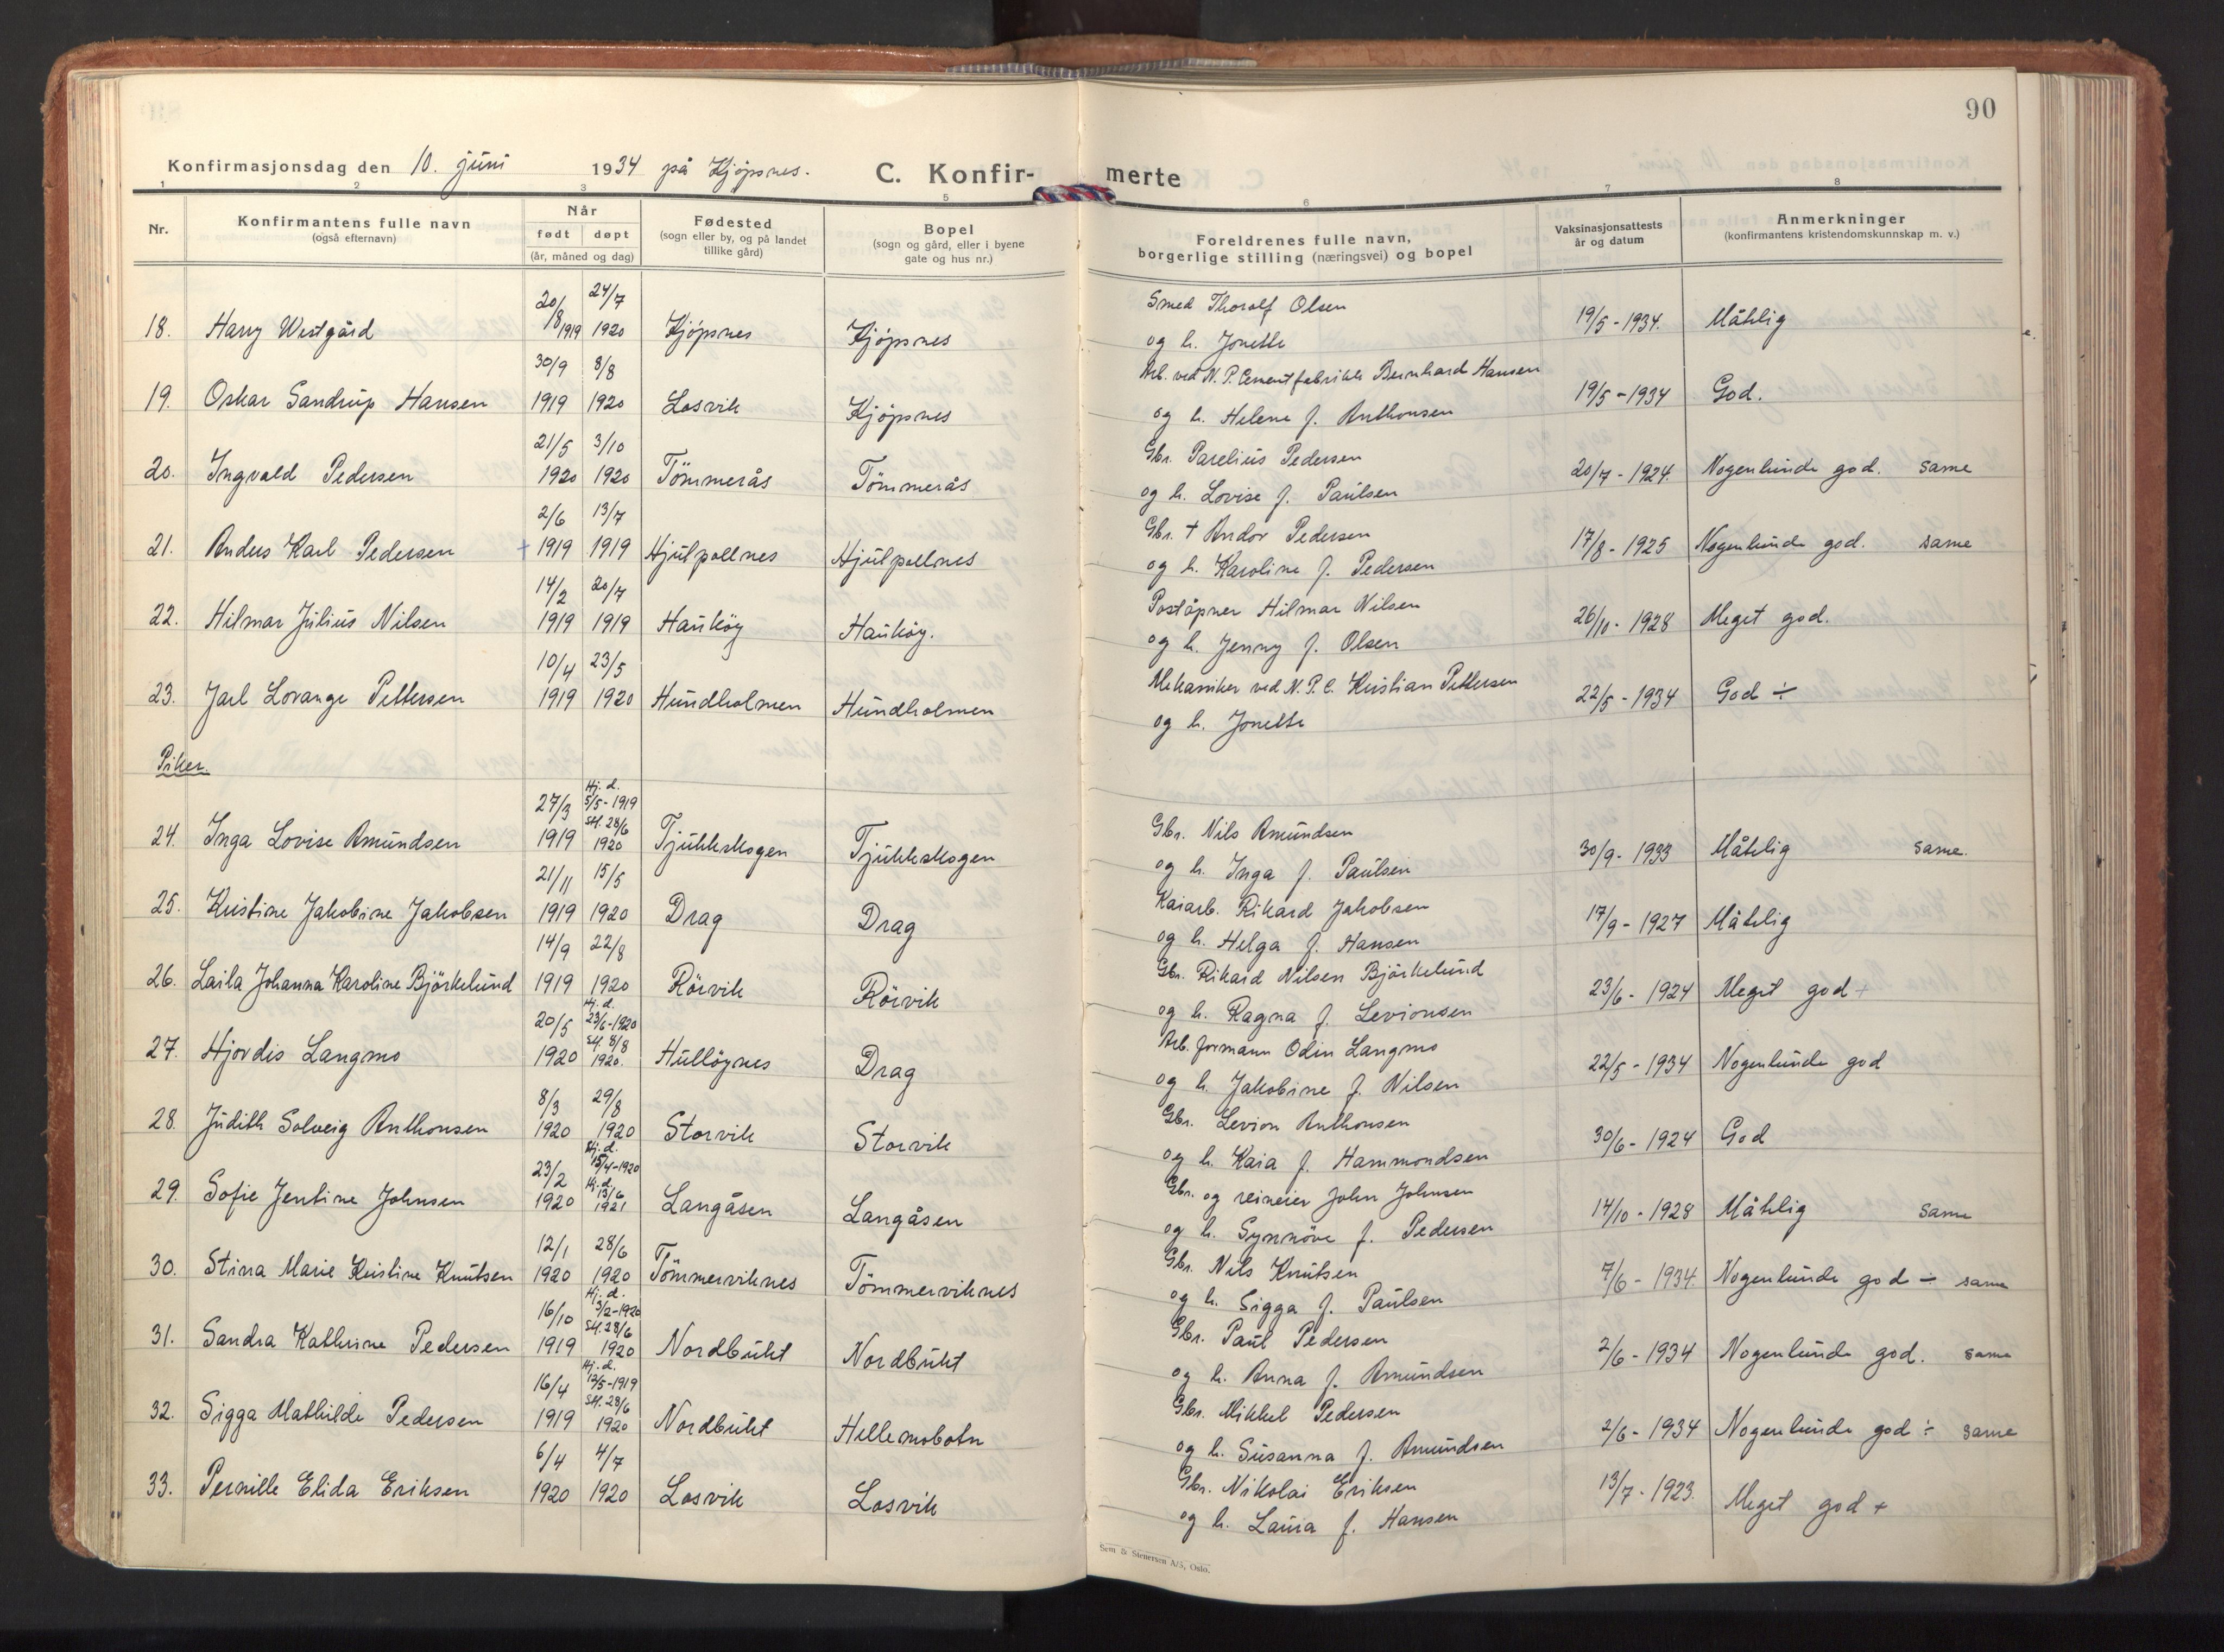 90
Konfirmasjonsdag den 10. juni 1934 på Kjöpsnes. C. Konfir- merte
1 2 3 5 6 7 8
Nr. Konfirmantens fulle navn (også efternavn) Når født døpt (år, måned og dag) Fødested (sogn eller by, og på landet tillike gård) Bopel (sogn og gård, eller i byene gate og hus nr.) Foreldrenes fulle navn, borgerlige stilling (næringsvei) og bopel Vaksinasjonsattests år og datum Anmerkninger (konfirmantens kristendomskunnskap m. v.)
18. Harry Westgård 20/8 1919 24/7 1920 Kjöpsnes Kjöpsnes Smed Thoralf Olsen og h. Jonette 19/5-1934. Måtelig
19. Oskar Sandrup Hansen 30/9 1919 8/8 1920 Losvik Kjöpsnes Arb. ved N.P. Cementfabrikk Bernhard Hansen og h. Helene f. Anthonsen 19/5-1934 God.
20. Ingvald Pedersen 21/5 1920 3/10 1920 Tömmerås Tömmerås Gbr. Parelius Pedersen og h. Lovise f. Paulsen 20/7-1924. Nogenlunde god. same
21. Anders Karl Pedersen + 2/6 1919 13/7 1919 Hjulpollnes Hjulpollnes Gbr. + Andor Pedersen og h. Karoline f. Pedersen 17/8-1925 Nogenlunde god. same
22. Hilmar Julius Nilsen 14/2 1919 20/7 1919 Hauköy Hauköy. Poståpner Hilmar Nilsen og h. Jenny f. Olsen 26/10-1928 Meget god.
23. Jarl Lorange Pettersen 10/4 1919 23/5 1920 Hundholmen Hundholmen Mekaniker ved N.P.C. Kristian Pettersen og h. Jonette 22/5-1934 God ÷
Piker.
24. Inga Lovise Amundsen 27/3 1919 Hj. d. 5/5-1919 St. 28/6 1920 Tjukkskogen Tjukkskogen Gbr. Nils Amundsen og h. Inga f. Paulsen 30/9-1933 Måtelig same.
25. Kristine Jakobine Jakobsen 21/11 1919 15/5 1920 Drag Drag Kaiarb. Rikard Jakobsen og h. Helga f. Hansen 17/9-1927 Måtelig
26. Laila Johanna Karoline Björkelund 14/9 1919 22/8 1920 Rörvik Rörvik Gbr. Rikard Nilsen Björkelund og h. Ragna f. Levionsen 23/6-1924 Meget god +
27. Hjördis Langmo 20/5 1920 Hj. d. 23/6-1920 St. 8/8 1920. Hullöynes Drag Arb. formann Odin Langmo og h. Jakobine f. Nilsen 22/5-1934 Nogenlunde god
28. Judith Solveig Anthonsen 8/3 1920 29/8 1920 Storvik Storvik Gbr. Levion Anthonsen og h. Kaia f. Hammondsen 30/6-1924 God
29. Sofie Jentine Johnsen 23/2 1920 Hj. d. 15/4-1920 Hj. d. 13/6 1921 Langåsen Langåsen Gbr. og reineier John Johnsen og h. Synnöve f. Pedersen 14/10-1928 Måtelig same
30. Stina Marie Kristine Knutsen 12/1 1920 28/6 1920 Tömmerviknes Tömmerviknes Gbr. Nils Knutsen og h. Sigga f. Paulsen 7/6-1934. Nogenlunde god ÷ same
31. Sandra Kathrine Pedersen 16/10 1919 Hj. d. 3/2-1920 St. 28/6 1920 Nordbukt Nordbukt Gbr. Paul Pedersen og h. Anna f. Amundsen 2/6-1934 Nogenlunde god. same
32. Sigga Mathilde Pedersen 16/4 1919 Hj. d. 12/5-1919 St. 28/6 1920 Nordbukt Hellemobotn Gbr. Mikkel Pedersen og h. Susanna f. Amundsen 2/6-1934 Nogenlunde god ÷ same
33. Pernille Elida Eriksen 6/4 1920 4/7 1920 Losvik Losvik Gbr. Nikolai Eriksen og h. Laura f. Hansen 13/7-1923. Meget god +
Sem & Stenersen A/S, Oslo.